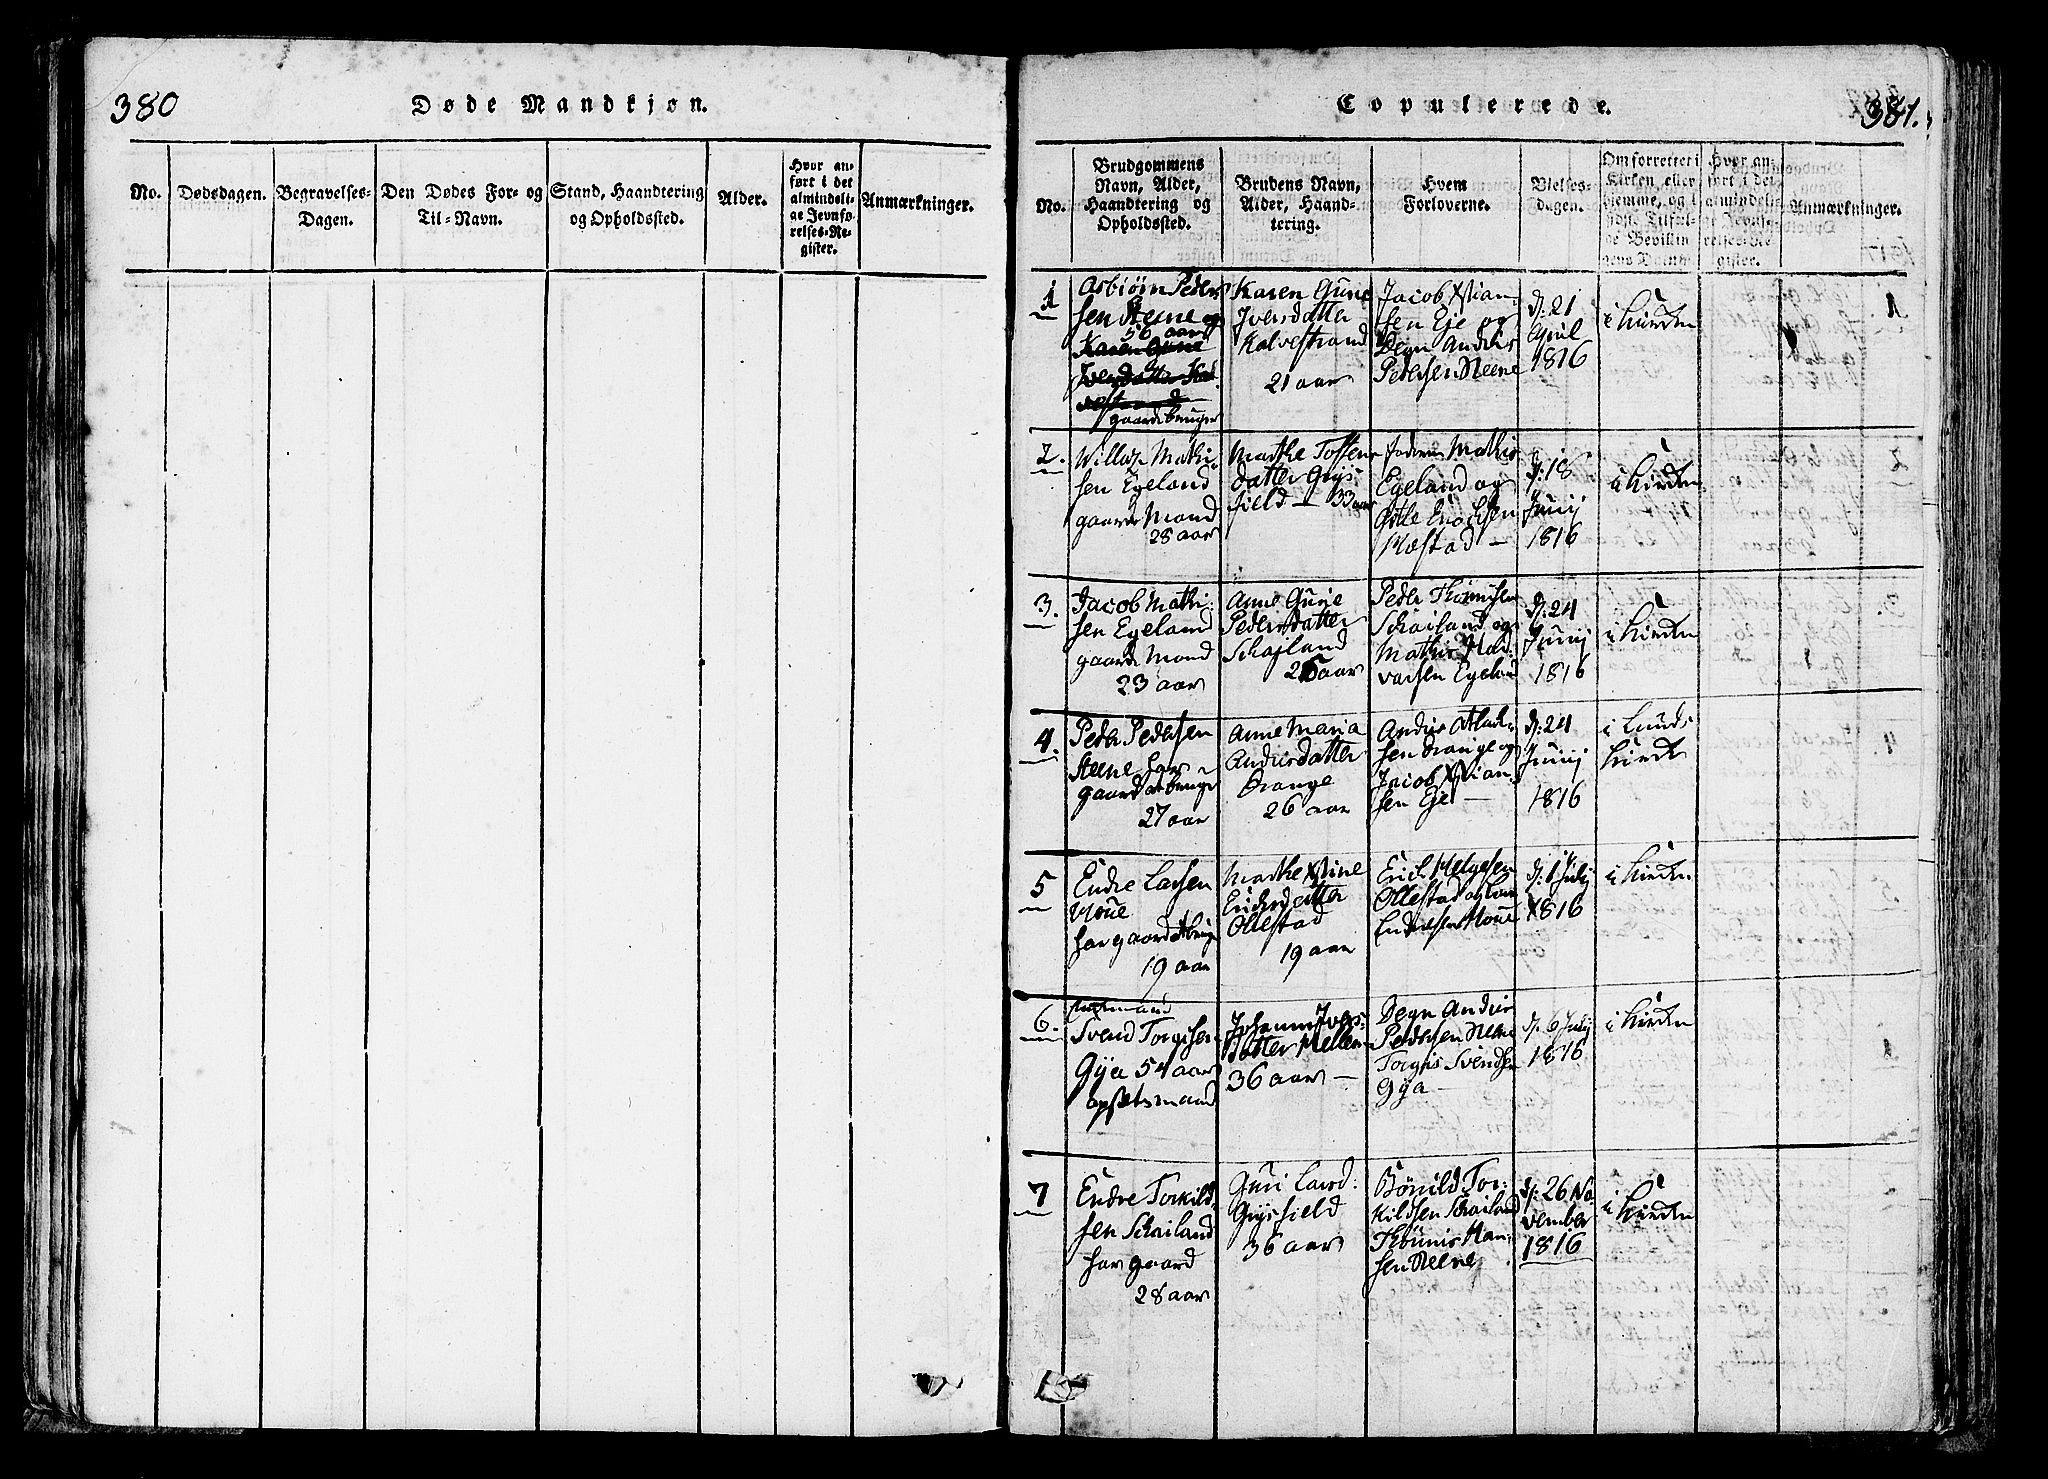 380
Døde Mandkjøn.
No.
Dødsdagen.
Begravelses-
Dagen.
Den Dødes For- og
Til-Navn.
Stand, Haandtering
og Opholdssted.
Alder.
Hvor an-
ført i det
almindeli-
ge Jevnfø-
relses-Re-
gister.
Anmærkninger.
Copulerede.
381.
No.
Brudgommens
Navn, Alder,
Haandtering og
Opholdssted.
Brudens Navn,
Alder, Haand-
tering.
Hvem
Forloverne.
Vielses-
dagen.
Om forrettet i
Kirken, eller
hjemme, og i
sidst Tilfæl-
de Bevillin
gens Datum
Hvor an-
ført i det
almindelig
e Jevnfø-
relses-Re
gister.
Anmærkninger.
1
Asbiørn Peder
sen Steene og
50 aar
Karen Gurie
Iversdatter Kal
vestrand
gaardebruger
Karen Gurie
Iversdatter
Kalvestrand
21 aar
Jacob Xstian-
sen Eje og
Degn Anders
Pedersen Neene
d: 21
April
1816
i Kirken
2.
Willaz Mathi-
sen Egeland
gaard Mand
28 aar
Marthe Tosten
datter Grøs
field - 33 aar
Mathis
Egeland og
Enochsen
Mæstad -
d: 18
Junij
1816
i Kirken
3.
Jacob Mathi-
sen Egeland
gaard Mand
23 aar
Anne Gurie
Pedersdatter
Schajland
25 aar
Peder Thønnisen
Schailand og
Mathis Hal
varsen Egeland
d: 24
Junij
1816
i Kirken
4.
Peder Pedersen
Steene har
gaard at bruge
27 aar
Anne Maria
Andersdatter
Drange
26 aar
Anders Atlak-
sen Drange og
Jacob Xstian-
sen Eje -
d: 24
Junij
1816
i Lunds
Kirke
5
Endre Larsen
Houe
har gaard at bruge
19 aar
Marthe Xstine
Erichsdatter
Ollestad
19 aar
Erich Helgesen
Ollestad og Lars
Endresen Houe
d: 1 July
1816
i Kirken
6.
Enkemand
Svend Torgisen
Gya 54 aar
opsætsmand
Johanne Ivers-
datter Mellem
36 aar -
Degn Anders
Pedersen Neene
Torgiis Svendsen
Gya -
d: 6 July
1816
i Kirken
7
Endre Torkild-
sen Schailand
har gaard
28 aar
Guri Larsd:
Grøsfield
36 aar
Bønild Tor-
kildsen Schailand
Thønnis Han-
sen Neene
d: 26 No
vember
1816
i Kirken